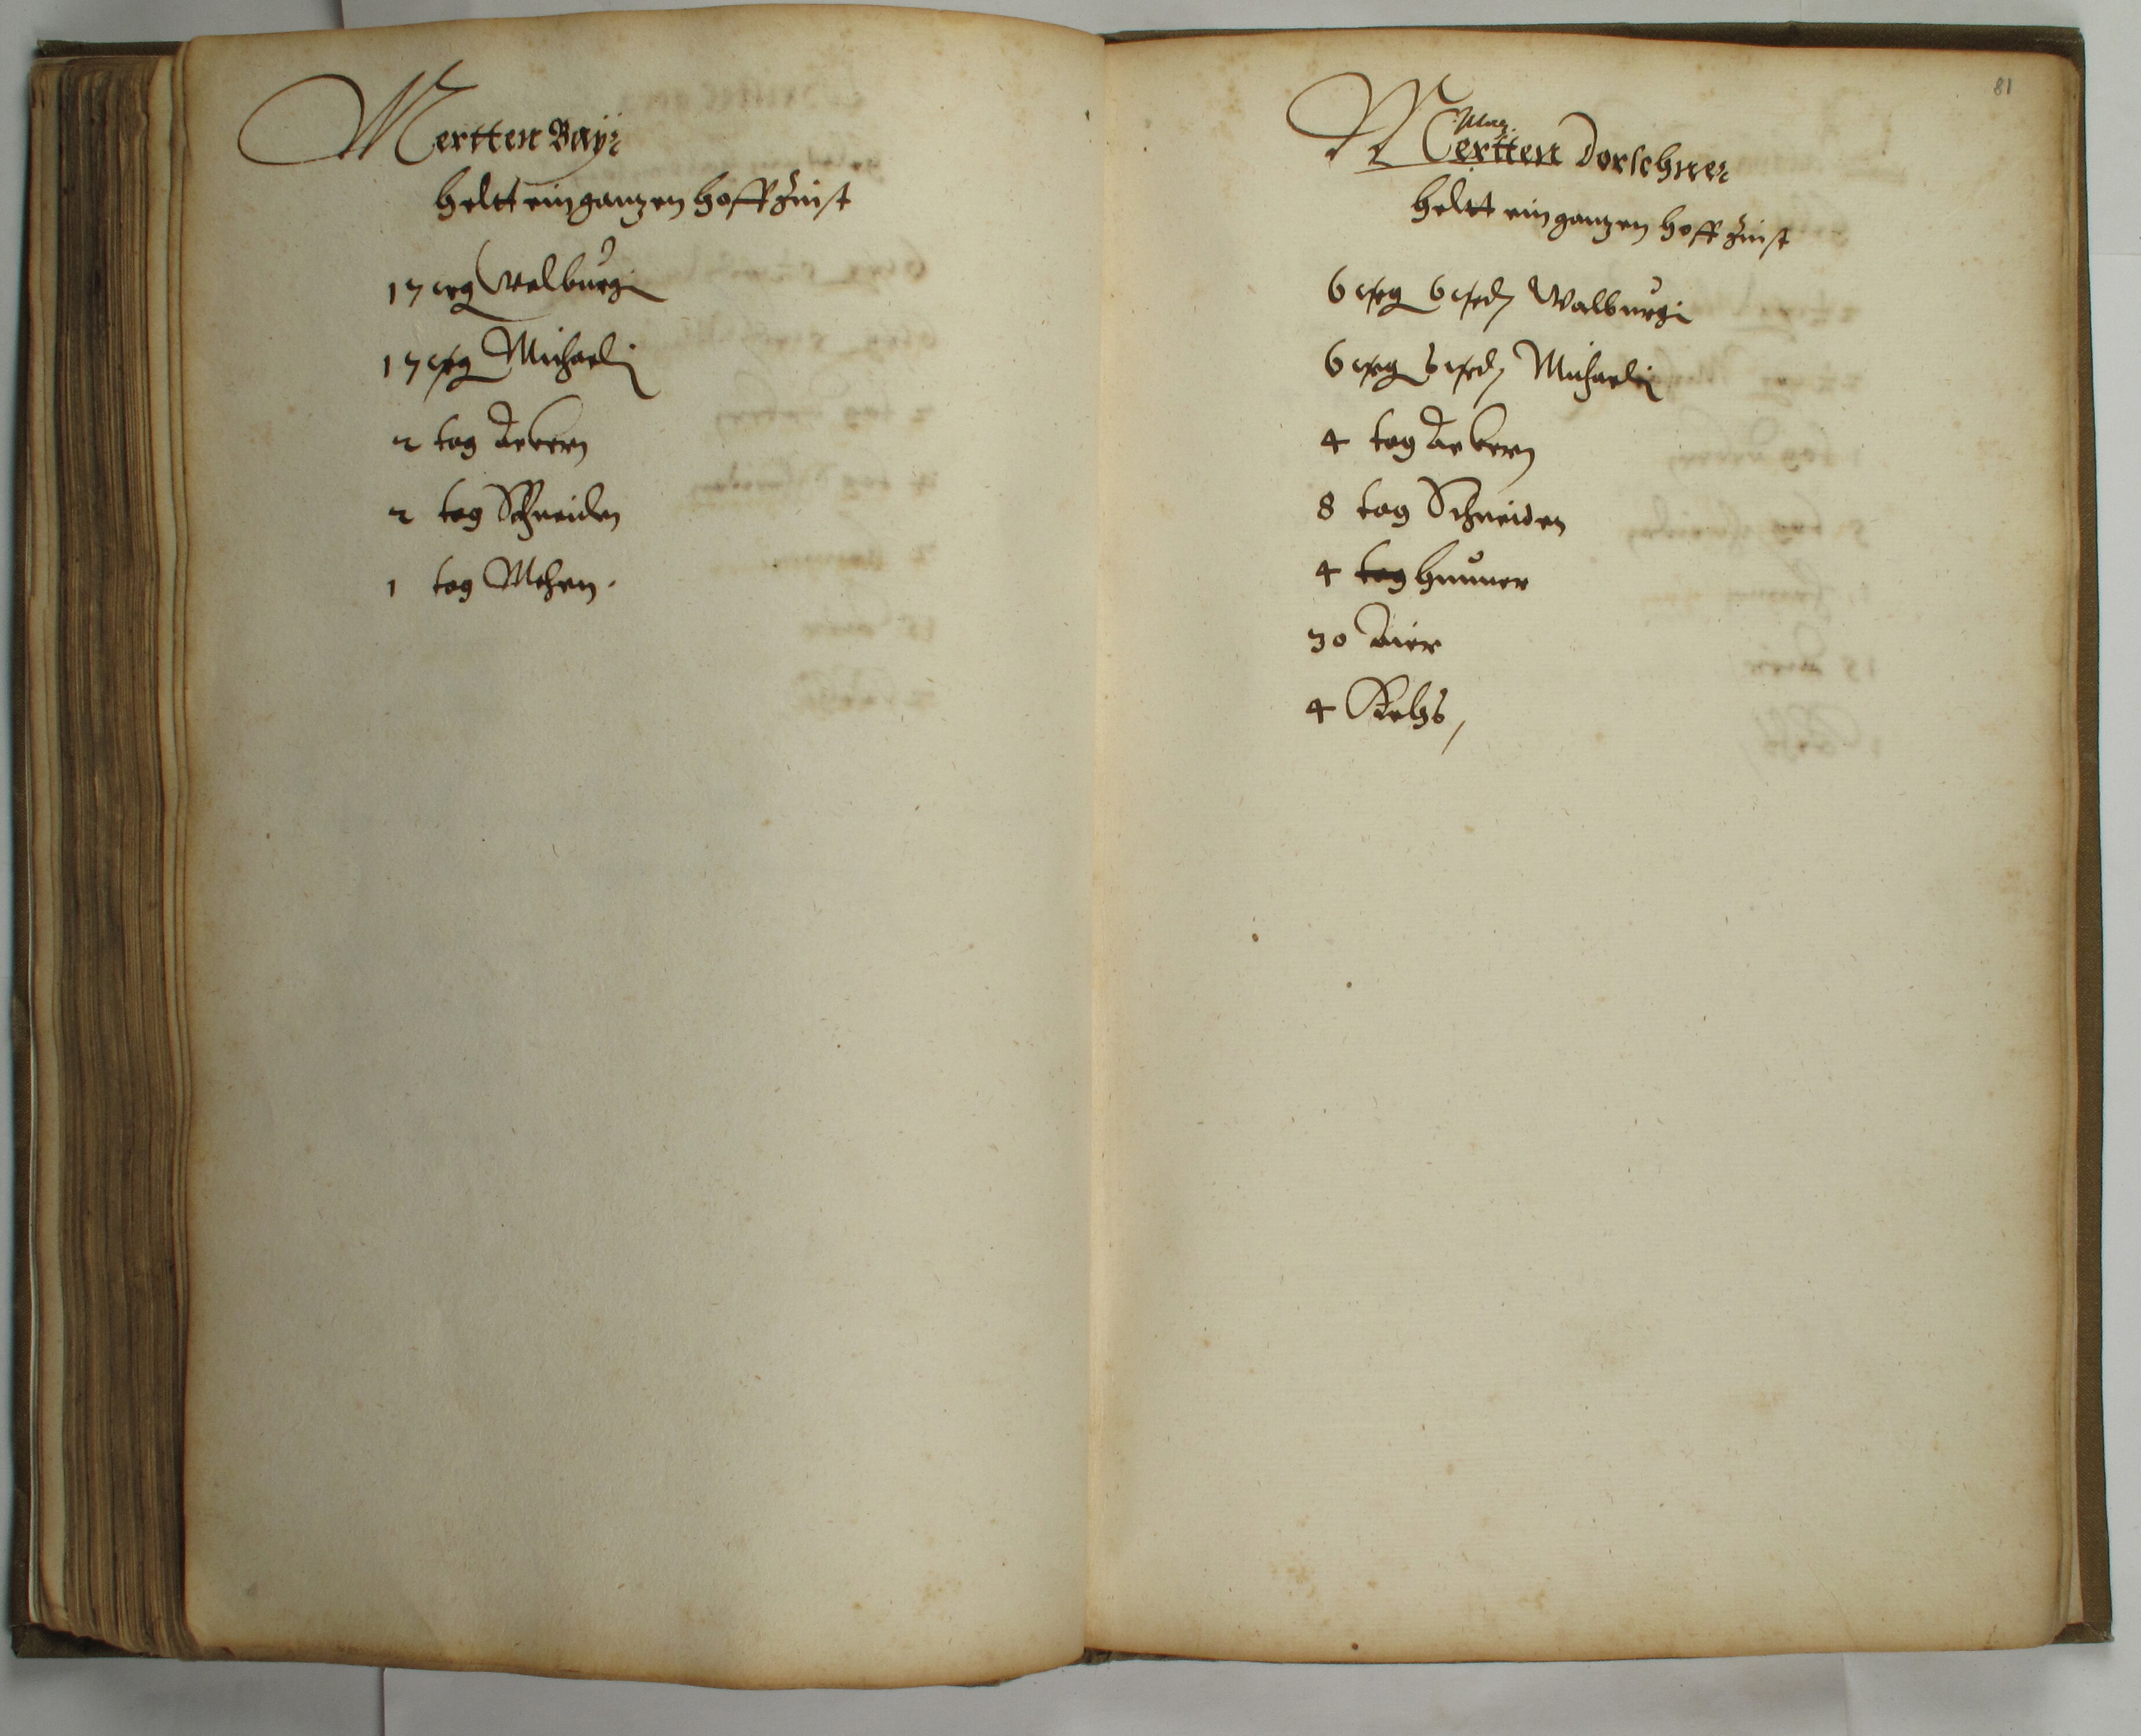 Mertten Bayr
heltt ein ganzen hoff Zinst
17 gg Walburgi
17 gg Michaeli
2 tag Ackern
2 tag Schneiden
1 tag Mehen.
81
Mertten Dorschner
heltt ein ganzen hoff Zinst
6 gg 6 d Walburgi
6 gg 6 d Michaeli
4 tag Ackern
8 tag Schneiden
4 tag huner
30 Aier
4 Kehs